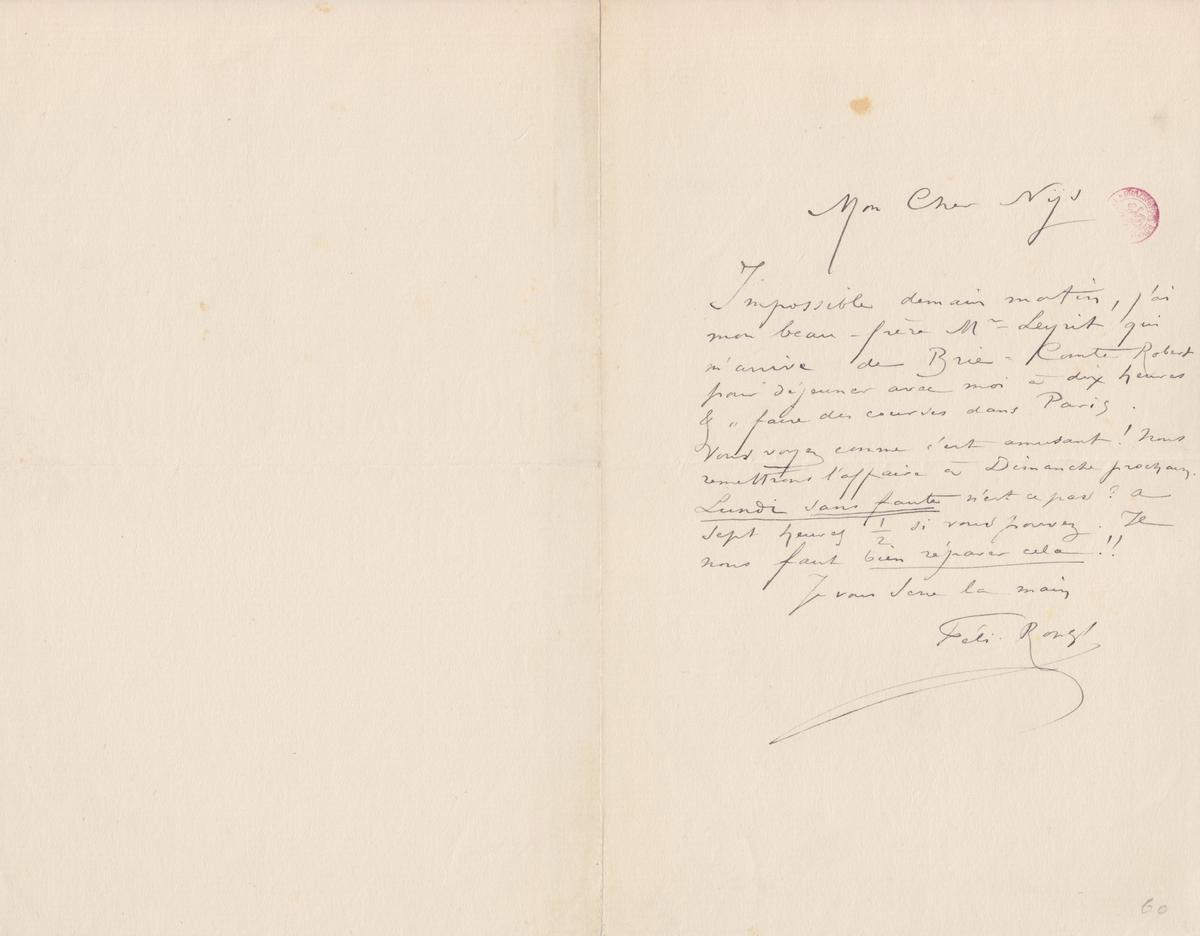 Mon Cher Nijs
Impossible demain matin, j'ai
mon beau-frère Mr Leyrit qui
m'arrive de Brie-Comte Robert
pour déjeuner avec moi à dix heures
& " faire des courses dans Paris.
Vous voyez comme c'est amusant! Nous
remettrons l'affaire à Dimanche prochain.
Lundi sans faute n'est ce pas? a
sept heures 1/2 si vous pouvez. Il
nous faut bien réparer cela!!
Je vous serre la main
Féli. Rops
60